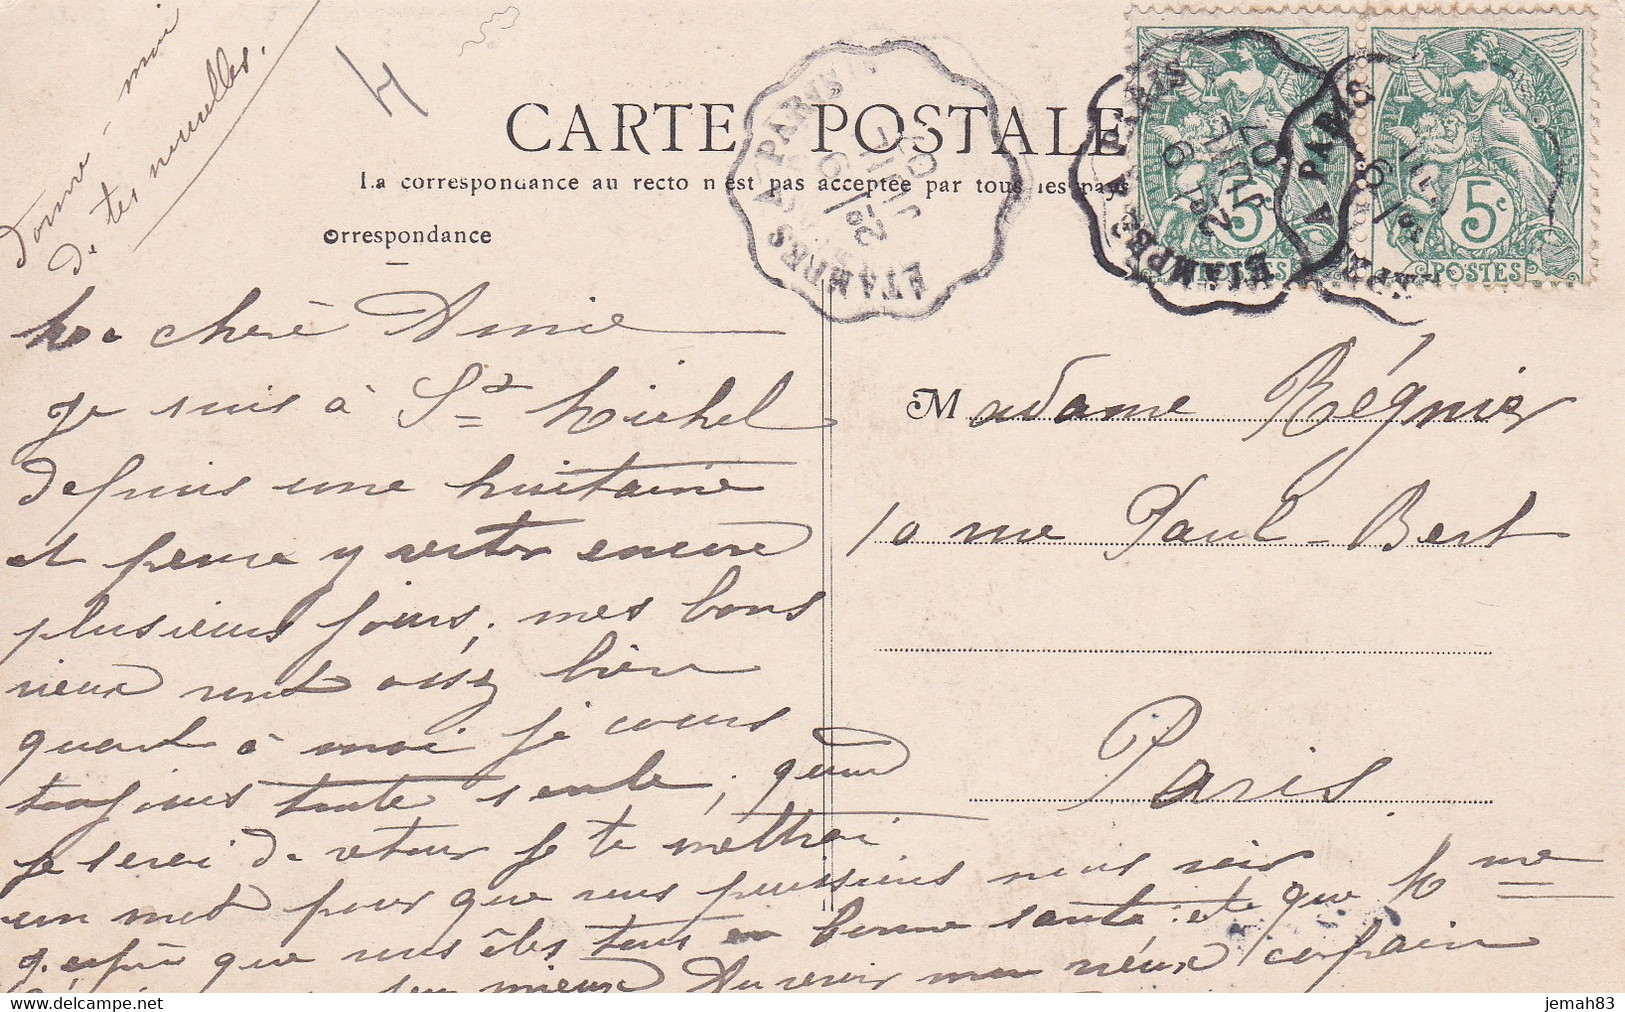 Donne-moi
de tes nouvelles.
4
CARTE POSTALE
La correspondance au recto n'est pas acceptée par tous les pays
orrespondance
ETAMPES A PARIS
ETAMPES A PARIS
A PARIS
5c
POSTES
5c
POSTES
Ma chère Amie
je suis à St Michel
depuis une huitaine
et pense y rester encore
plusieurs jours, mes bons
vieux vont assez bien
quant à moi je cours
toujours toute seule, quand
je serai de retour je te mettrai
un mot pour que nous puissions nous voir
j'espère que vous êtes tous en bonne santé et que Mme
mieux Au revoir mon vieux copain
M adame Régnier
10 rue Paul-Bert
Paris.
jemah83